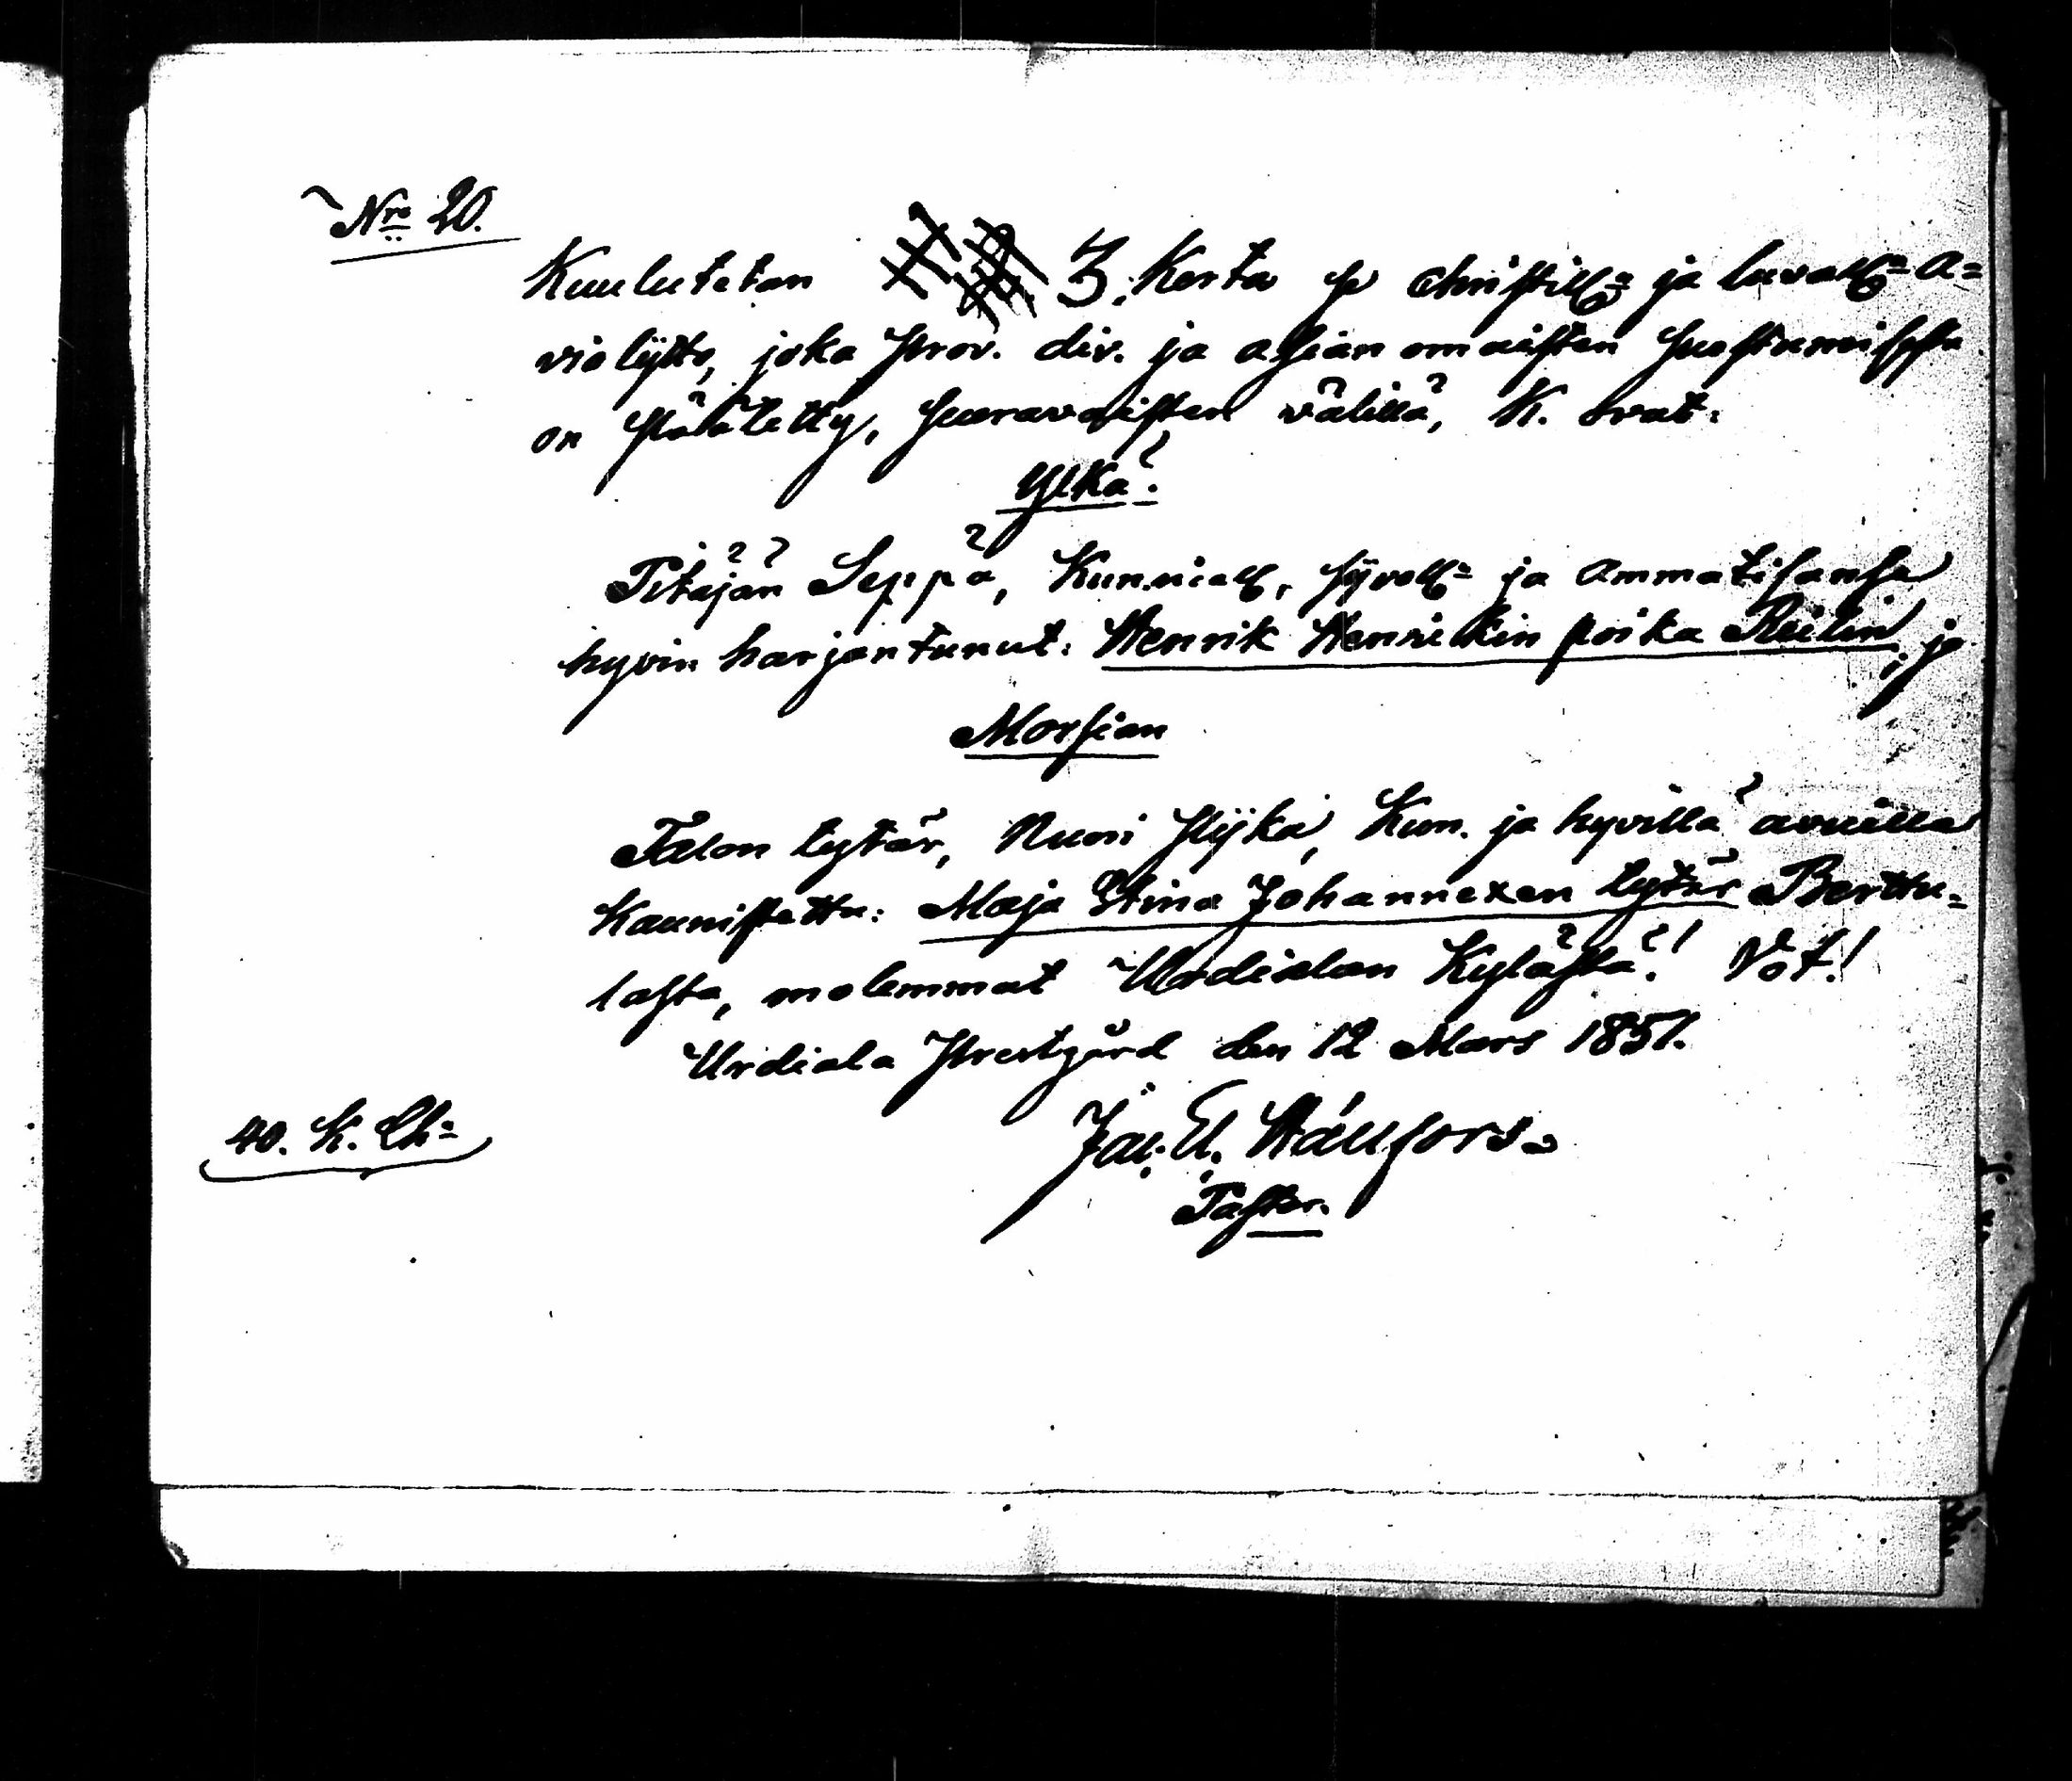 Nro 20.
Kuulutetan 3. Kerta se christill: ja luvall: A=
violijtto, joka Prov. div. ja asian omaisten suostumisesta
on päätetty, seuravaisten välillä, K. ovat:
Ylkä:
Pitäjän Seppä, Kunniall, sijvoll: ja Ammatisansa
hyvin harjantunut: Henrik Henrikin poika Reilin, ja
Morsian
Talon tytär, Nuori Pijka, Kun. ja hyvillä avuilla
Kaunistettu: Maja Stina Johannexen tytär Berttu=
lasta, molemmat Urdialan Kylästä! Vot!
Urdiala Prestgård den 12 Mars 1851.
40. K. Lk:
Jac. El. Hállfors.
Pastor.